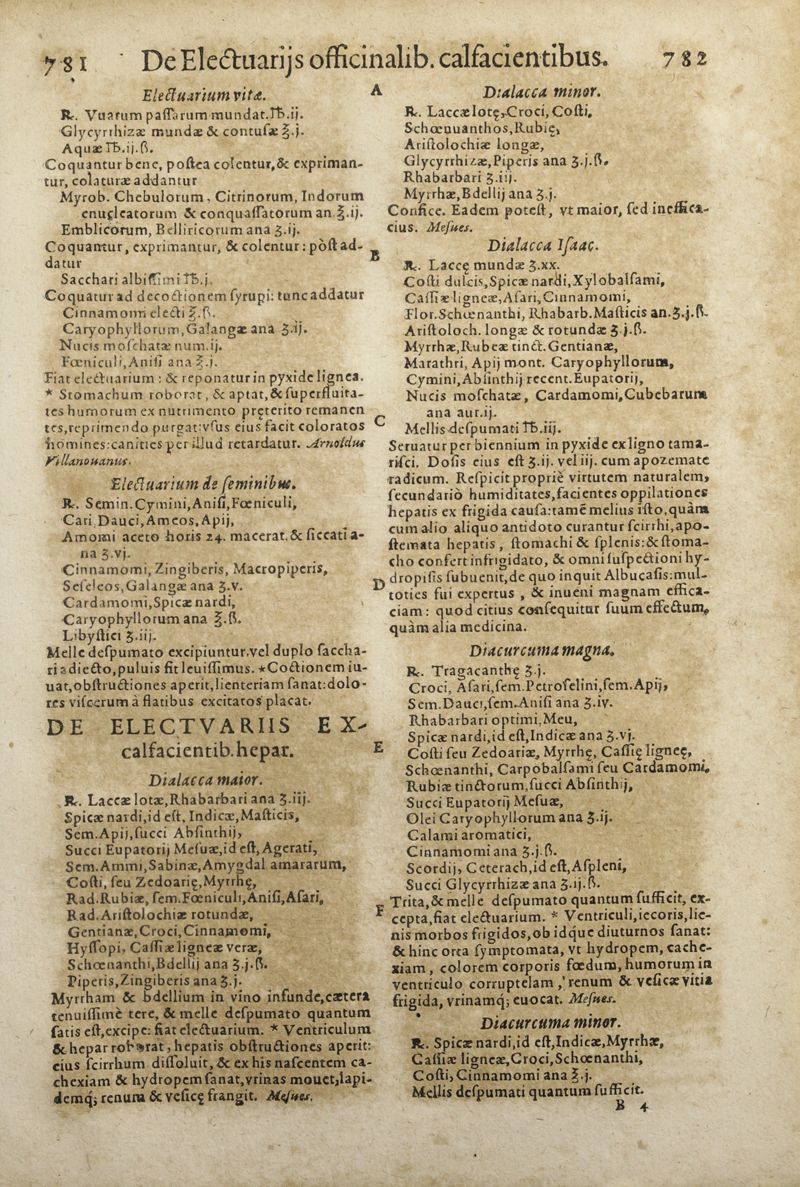 781 De Electuarijs officinalib. calfacientibus. 782
Electuarium vitæ.
℞. Vuarum passarum mundat.℔.ij.
Glycyrrhizæ mundæ & contusæ ℥.j.
Aquæ ℔.ij.ß.
Coquantur bene, postea colentur,& expriman-
tur, colaturæ addantur
Myrob. Chebulorum, Citrinorum, Indorum
enucleatorum & conquassatorum an ℥.ij.
Emblicorum, Belliricorum ana ʒ.ij.
Coquantur, exprimantur, & colentur: post ad-
datur
Sacchari albissimi ℔.j.
Coquatur ad decoctionem syrupi: tunc addatur
Cinnamomi electi ℥.ß.
Caryophyllorum, Galangæ ana ʒ.ij.
Nucis moschatæ num.ij.
Fœniculi, Anisi ana ℥.j.
Fiat electuarium: & reponatur in pyxide lignea.
* Stomachum roborat, & aptat,& superfluita-
tes humorum ex nutrimento pręterito remanen
tes,reprimendo purgat:vsus eius facit coloratos
homines:canities per illud retardatur. Arnoldus
Villanouanus.
Electuarium de seminibus.
℞. Semin.Cymini, Anisi, Fœniculi,
Cari, Dauci, Ameos, Apij,
Amomi aceto horis 24. macerat.& siccati a-
na ʒ.vj.
Cinnamomi, Zingiberis, Macropiperis,
Seseleos, Galangæ ana ʒ.v.
Cardamomi, Spicæ nardi,
Caryophyllorum ana ℥.ß.
Libystici ʒ.iij.
Melle despumato excipiuntur.vel duplo saccha-
ri a diecto,puluis fit leuissimus. *Coctionem iu-
uat,obstructiones aperit,lienteriam sanat:dolo-
res viscerum à flatibus excitatos placat.
DE ELECTVARIIS EX-
calfacientib. hepar.
Dialacca maior.
℞. Laccæ lotæ, Rhabarbari ana ʒ.iij.
Spicæ nardi,id est, Indicæ, Masticis,
Sem. Apij,succi Absinthij,
Succi Eupatorij Mesuæ,id est, Agerati,
Sem. Ammi, Sabinæ, Amygdal amararum,
Costi, seu Zedoarię, Myrrhę,
Rad. Rubiæ, sem. Fœniculi, Anisi, Asari,
Rad. Aristolochiæ rotundæ,
Gentianæ, Croci, Cinnamomi,
Hyssopi, Cassiæ ligneæ veræ,
Schœnanthi, Bdellij ana ʒ.j.ß.
Piperis, Zingiberis ana ʒ.j.
Myrrham & bdellium in vino infunde,cætera
tenuissimè tere, & melle despumato quantum
satis est,excipe: fiat electuarium. * Ventriculum
& hepar roborat, hepatis obstructiones aperit:
eius scirrhum dissoluit, & ex his nascentem ca-
chexiam & hydropem sanat,vrinas mouet,lapi-
demq; renum & vesicę frangit. Mesues.
A
Dialacca minor.
℞. Laccæ lotę, Croci, Costi,
Schœnuanthos, Rubię,
Aristolochiæ longæ,
Glycyrrhizæ, Piperis ana ʒ.j.ß.
Rhabarbari ʒ.iij.
Myrrhæ, Bdellij ana ʒ.j.
Confice. Eadem potest, vt maior, sed ineffica-
cius. Mesues.
Dialacca Isaac.
B
℞. Laccę mundæ ʒ.xx.
Costi dulcis, Spicæ nardi, Xylobalsami,
Cassiæ ligneæ, Asari, Cinnamomi,
Flor. Schœnanthi, Rhabarb. Masticis an.ʒ.j.ß.
Aristoloch. longæ & rotundæ ʒ.j.ß.
Myrrhæ, Rubeæ tinct. Gentianæ,
Marathri, Apij mont. Caryophyllorum,
Cymini, Absinthij recent. Eupatorij,
Nucis moschatæ, Cardamomi, Cubebarum
ana aur.ij.
C
Mellis despumati ℔.iij.
Seruatur per biennium in pyxide ex ligno tama-
risci. Dosis eius est ʒ.ij. vel iij. cum apozemate
radicum. Respicit propriè virtutem naturalem,
secundariò humiditates,facientes oppilationes
hepatis ex frigida causa:tamē melius isto,quàm
cum alio aliquo antidoto curantur scirrhi,apo-
stemata hepatis, stomachi & splenis:& stoma-
cho confert infrigidato, & omni suspectioni hy-
D
dropisis subuenit,de quo inquit Albucasis:mul-
toties fui expertus, & inueni magnam effica-
ciam: quod citius consequitur suum effectum,
quàm alia medicina.
Diacurcuma magna.
℞. Tragacanthę ʒ.j.
Croci, Asari, sem. Petroselini, sem. Apij,
Sem. Dauci, sem. Anisi ana ʒ.iv.
Rhabarbari optimi, Meu,
Spicæ nardi,id est, Indicæ ana ʒ.vj.
E
Costi seu Zedoariæ, Myrrhę, Cassię lignę,
Schœnanthi, Carpobalsami seu Cardamomi,
Rubiæ tinctorum, succi Absinthij,
Succi Eupatorij Mesuæ,
Olei Caryophyllorum ana ʒ.ij.
Calami aromatici,
Cinnamomi ana ʒ.j.ß.
Scordij, Ceterach,id est, Aspleni,
Succi Glycyrrhizæ ana ʒ.ij.ß.
F
Trita,& melle despumato quantum sufficit, ex-
cepta,fiat electuarium. * Ventriculi,iecoris,lie-
nis morbos frigidos,ob idque diuturnos sanat:
& hinc orta symptomata, vt hydropem, cache-
xiam, colorem corporis fœdum, humorum in
ventriculo corruptelam, renum & vesicæ vitia
frigida, vrinamq; euocat. Mesues.
Diacurcuma minor.
℞. Spicæ nardi,id est, Indicæ, Myrrhæ,
Cassiæ ligneæ, Croci, Schœnanthi,
Costi, Cinnamomi ana ℥.j.
Mellis despumati quantum sufficit.
B 4